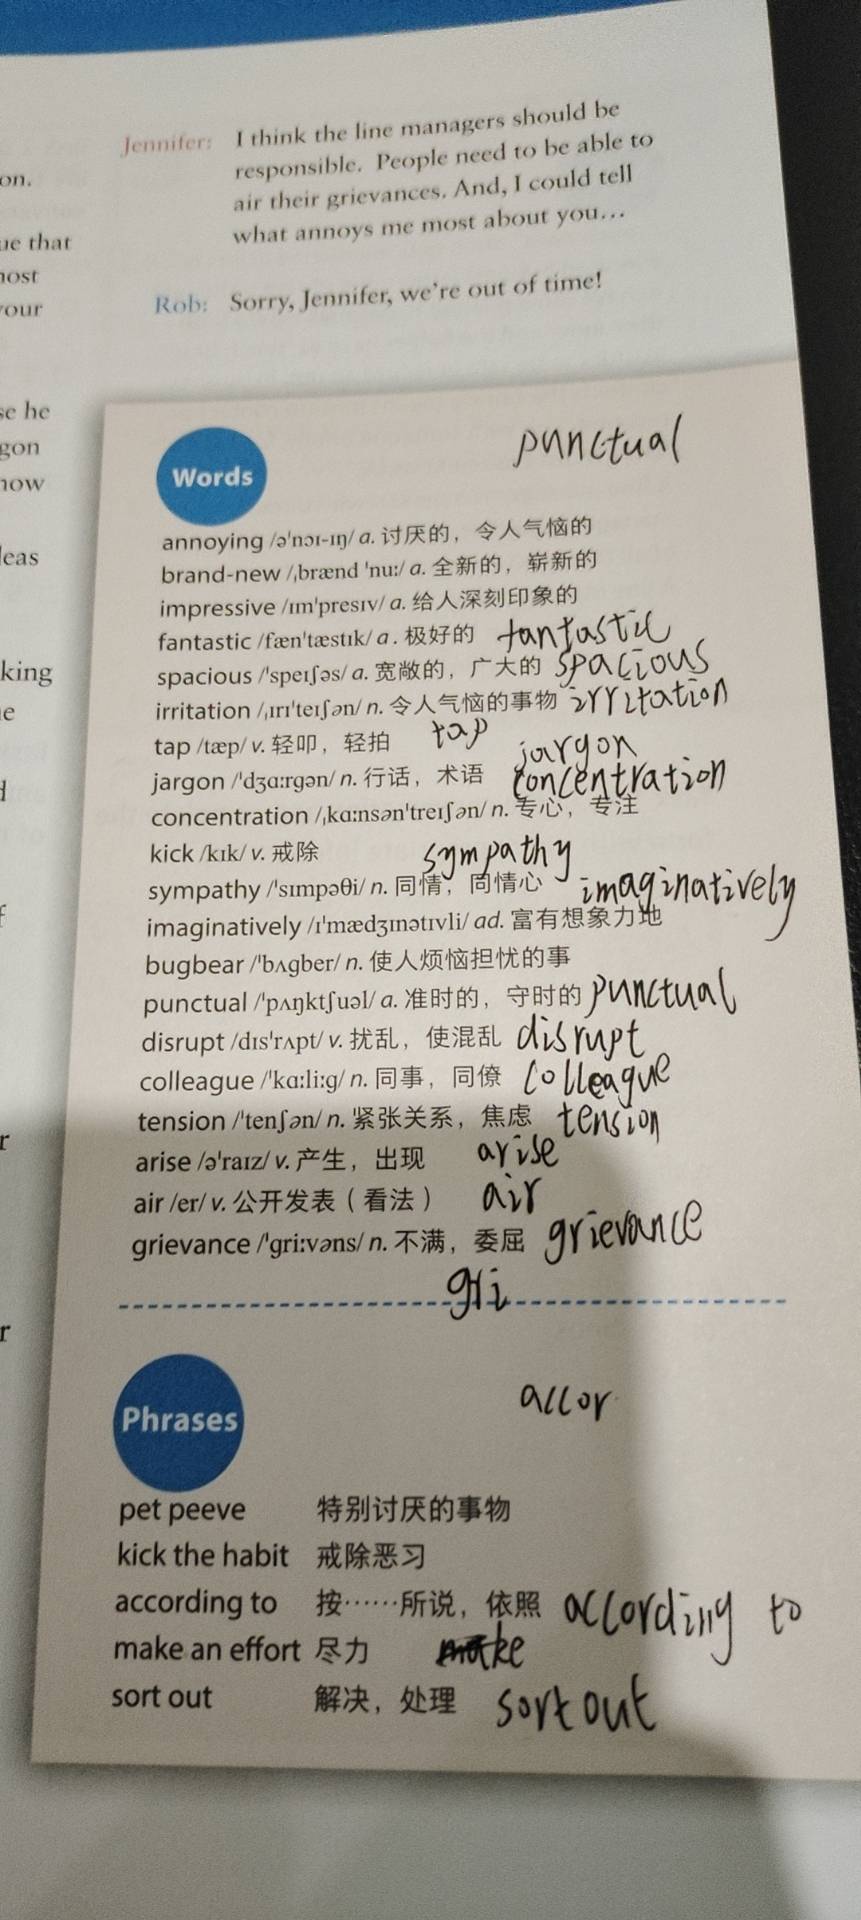 Jennifer: I think the line managers should be
responsible. People need to be able to
air their grievances. And, I could tell
what annoys me most about you…
Rob: Sorry, Jennifer, we're out of time!
on.
ue that
most
your
se he
gon
now
leas
king
e
d
f
r
r
Words
punctual
annoying /ə'nɔɪ-ɪŋ/ a. 讨厌的，令人气恼的
brand-new /ˌbrænd 'nuː/ a. 全新的，崭新的
impressive /ɪm'presɪv/ a. 给人深刻印象的
fantastic /fæn'tæstɪk/ a. 极好的 fantastic
spacious /'speɪʃəs/ a. 宽敞的，广大的 spacious
irritation /ˌɪrɪ'teɪʃən/ n. 令人气恼的事物 irritation
tap /tæp/ v. 轻叩，轻拍 tap
jargon /'dʒɑːrgən/ n. 行话，术语 jargon
concentration /ˌkɑːnsən'treɪʃən/ n. 专心，专注 concentration
kick /kɪk/ v. 戒除
sympathy /'sɪmpəθi/ n. 同情，同情心 sympathy
imaginatively /ɪ'mædʒɪnətɪvli/ ad. 富有想象力地 imaginatively
bugbear /'bʌgber/ n. 使人烦恼担忧的事
punctual /'pʌŋktʃuəl/ a. 准时的，守时的 punctual
disrupt /dɪs'rʌpt/ v. 扰乱，使混乱 disrupt
colleague /'kɑːliːg/ n. 同事，同僚 colleague
tension /'tenʃən/ n. 紧张关系，焦虑 tension
arise /ə'raɪz/ v. 产生，出现 arise
air /er/ v. 公开发表（看法） air
grievance /'griːvəns/ n. 不满，委屈 grievance
gri
Phrases
accor
pet peeve 特别讨厌的事物
kick the habit 戒除恶习
according to 按……所说，依照 according to
make an effort 尽力 make
sort out 解决，处理 sort out